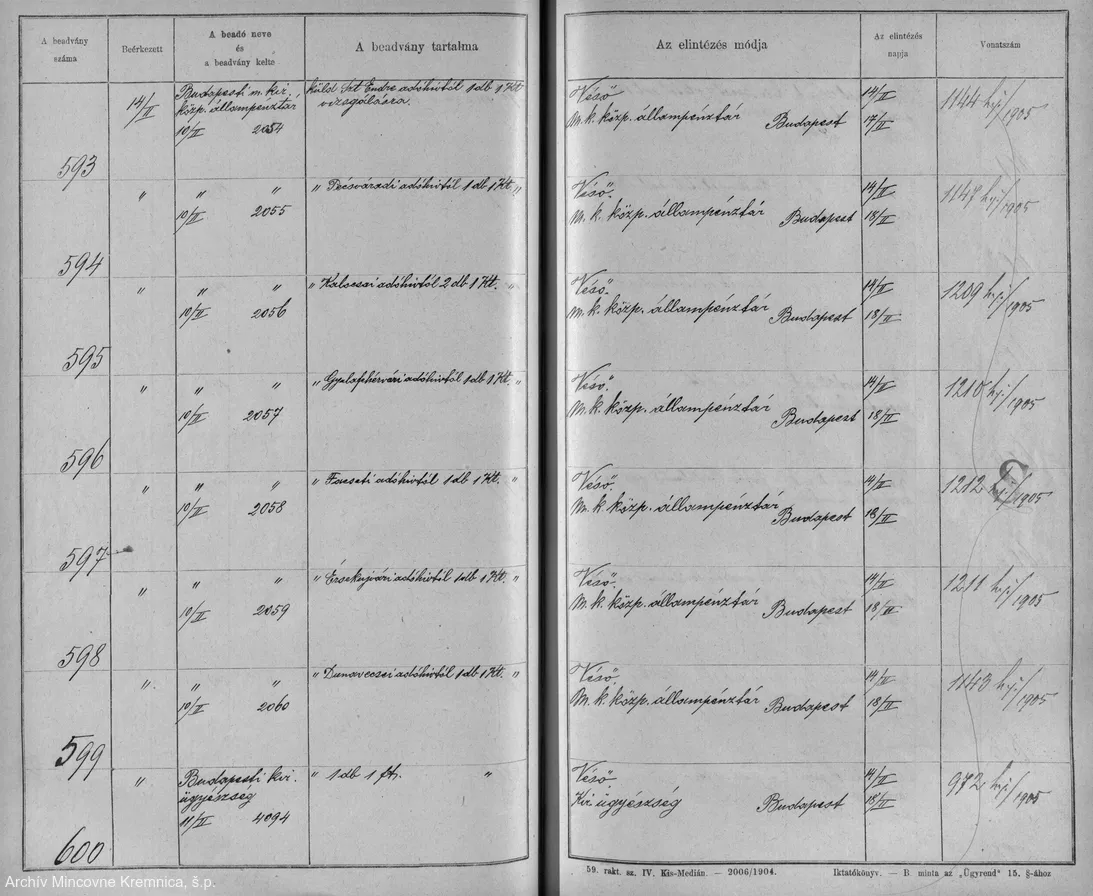 A beadvány száma
Beérkezett
A beadó neve és a beadvány kelte
A beadvány tartalma
Az elintézés módja
Az elintézés napja
Vonatszám
14/II
Budapesti m. kir.
közp. állampénztár
10/II 2054
küld Szt Endre adóhivtól 1 db 1 Kt
vizsgálására.
Véső
M. k. közp. állampénztár Budapest
14/II
17/II
1144 h.j./1905
593
" " "
10/II 2055
" Pécsváradi adóhivtól 1 db 1 Kt. "
Véső.
M. k. közp. állampénztár Budapest
14/II
18/II
1147 h.j./1905
594
" " "
10/II 2056
" Kalocsai adóhivtól 2 db 1 Kt. "
Véső.
M. k. közp. állampénztár Budapest
14/II
18/II
1209 h.j./1905
595
" " "
10/II 2057
" Gyulafehérvári adóhivtól 1 db 1 Kt. "
Véső.
M. k. közp. állampénztár Budapest
14/II
18/II
1210 h.j./1905
596
" " "
10/II 2058
" Facseti adóhivtól 1 db 1 Kt. "
Véső.
M. k. közp. állampénztár Budapest
14/II
18/II
1212 h.j./1905
597
" " "
10/II 2059
" Érsekujvári adóhivtól 1 db 1 Kt. "
Véső.
M. k. közp. állampénztár Budapest
14/II
18/II
1211 h.j./1905
598
" " "
10/II 2060
" Dunavecsei adóhivtól 1 db 1 Kt. "
Véső.
M. k. közp. állampénztár Budapest
14/II
18/II
1143 h.j./1905
599
"
Budapesti kir.
ügyészség
11/II 4094
" 1 db 1 ft. "
Véső
Kir. ügyészség Budapest
14/II
18/II
972 h.j./1905
600
59. rakt. sz. IV. Kis-Medián. — 2006/1904.
Iktatókönyv. — B. minta az „Ügyrend" 15. §-ához
Archív Mincovne Kremnica, š.p.